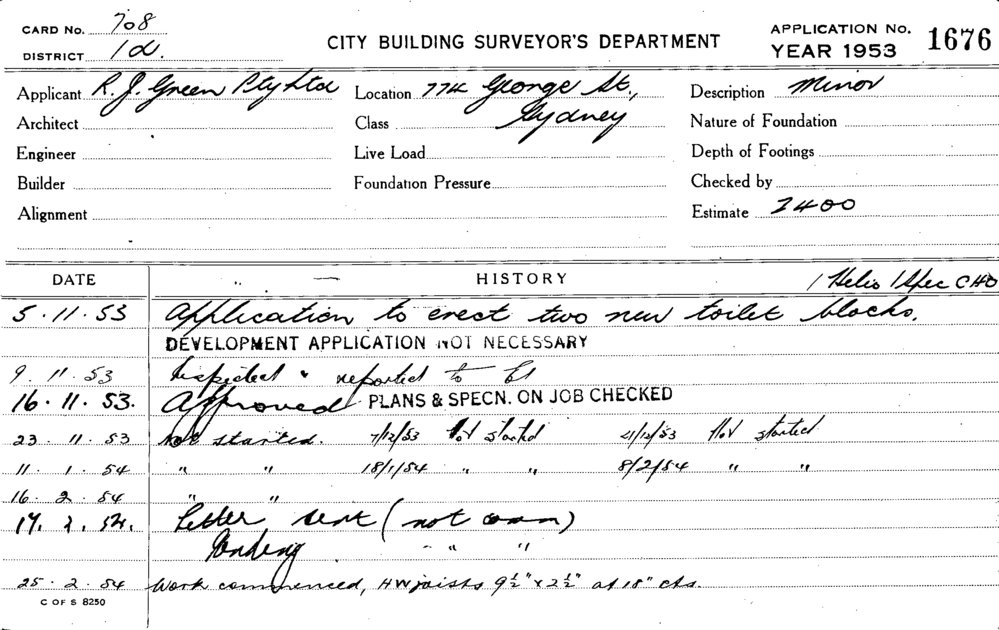 CARD No. 708
DISTRICT 1d.
CITY BUILDING SURVEYOR'S DEPARTMENT
APPLICATION No.
YEAR 1953 1676
Applicant R. J. Green Pty Ltd Location 774 George St., Description Minor
Architect Class Sydney Nature of Foundation
Engineer Live Load Depth of Footings
Builder Foundation Pressure Checked by
Alignment Estimate 2400
DATE HISTORY 1 Helio 1 Spec CHO
5.11.53 Application to erect two new toilet blocks.
DEVELOPMENT APPLICATION NOT NECESSARY
9.11.53 Inspected & reported to
16.11.53. Approved PLANS & SPECN. ON JOB CHECKED
23.11.53 Not started. 7/12/53 Not started 21/12/53 Not started
11.1.54 " " 18/1/54 " " 8/2/54 " "
16.2.54 " "
17.2.54. Letter sent (not com)
Pending " "
25.2.54 Work commenced, HW joists 9½" x 2½" at 18" cts.
C OF S 8250